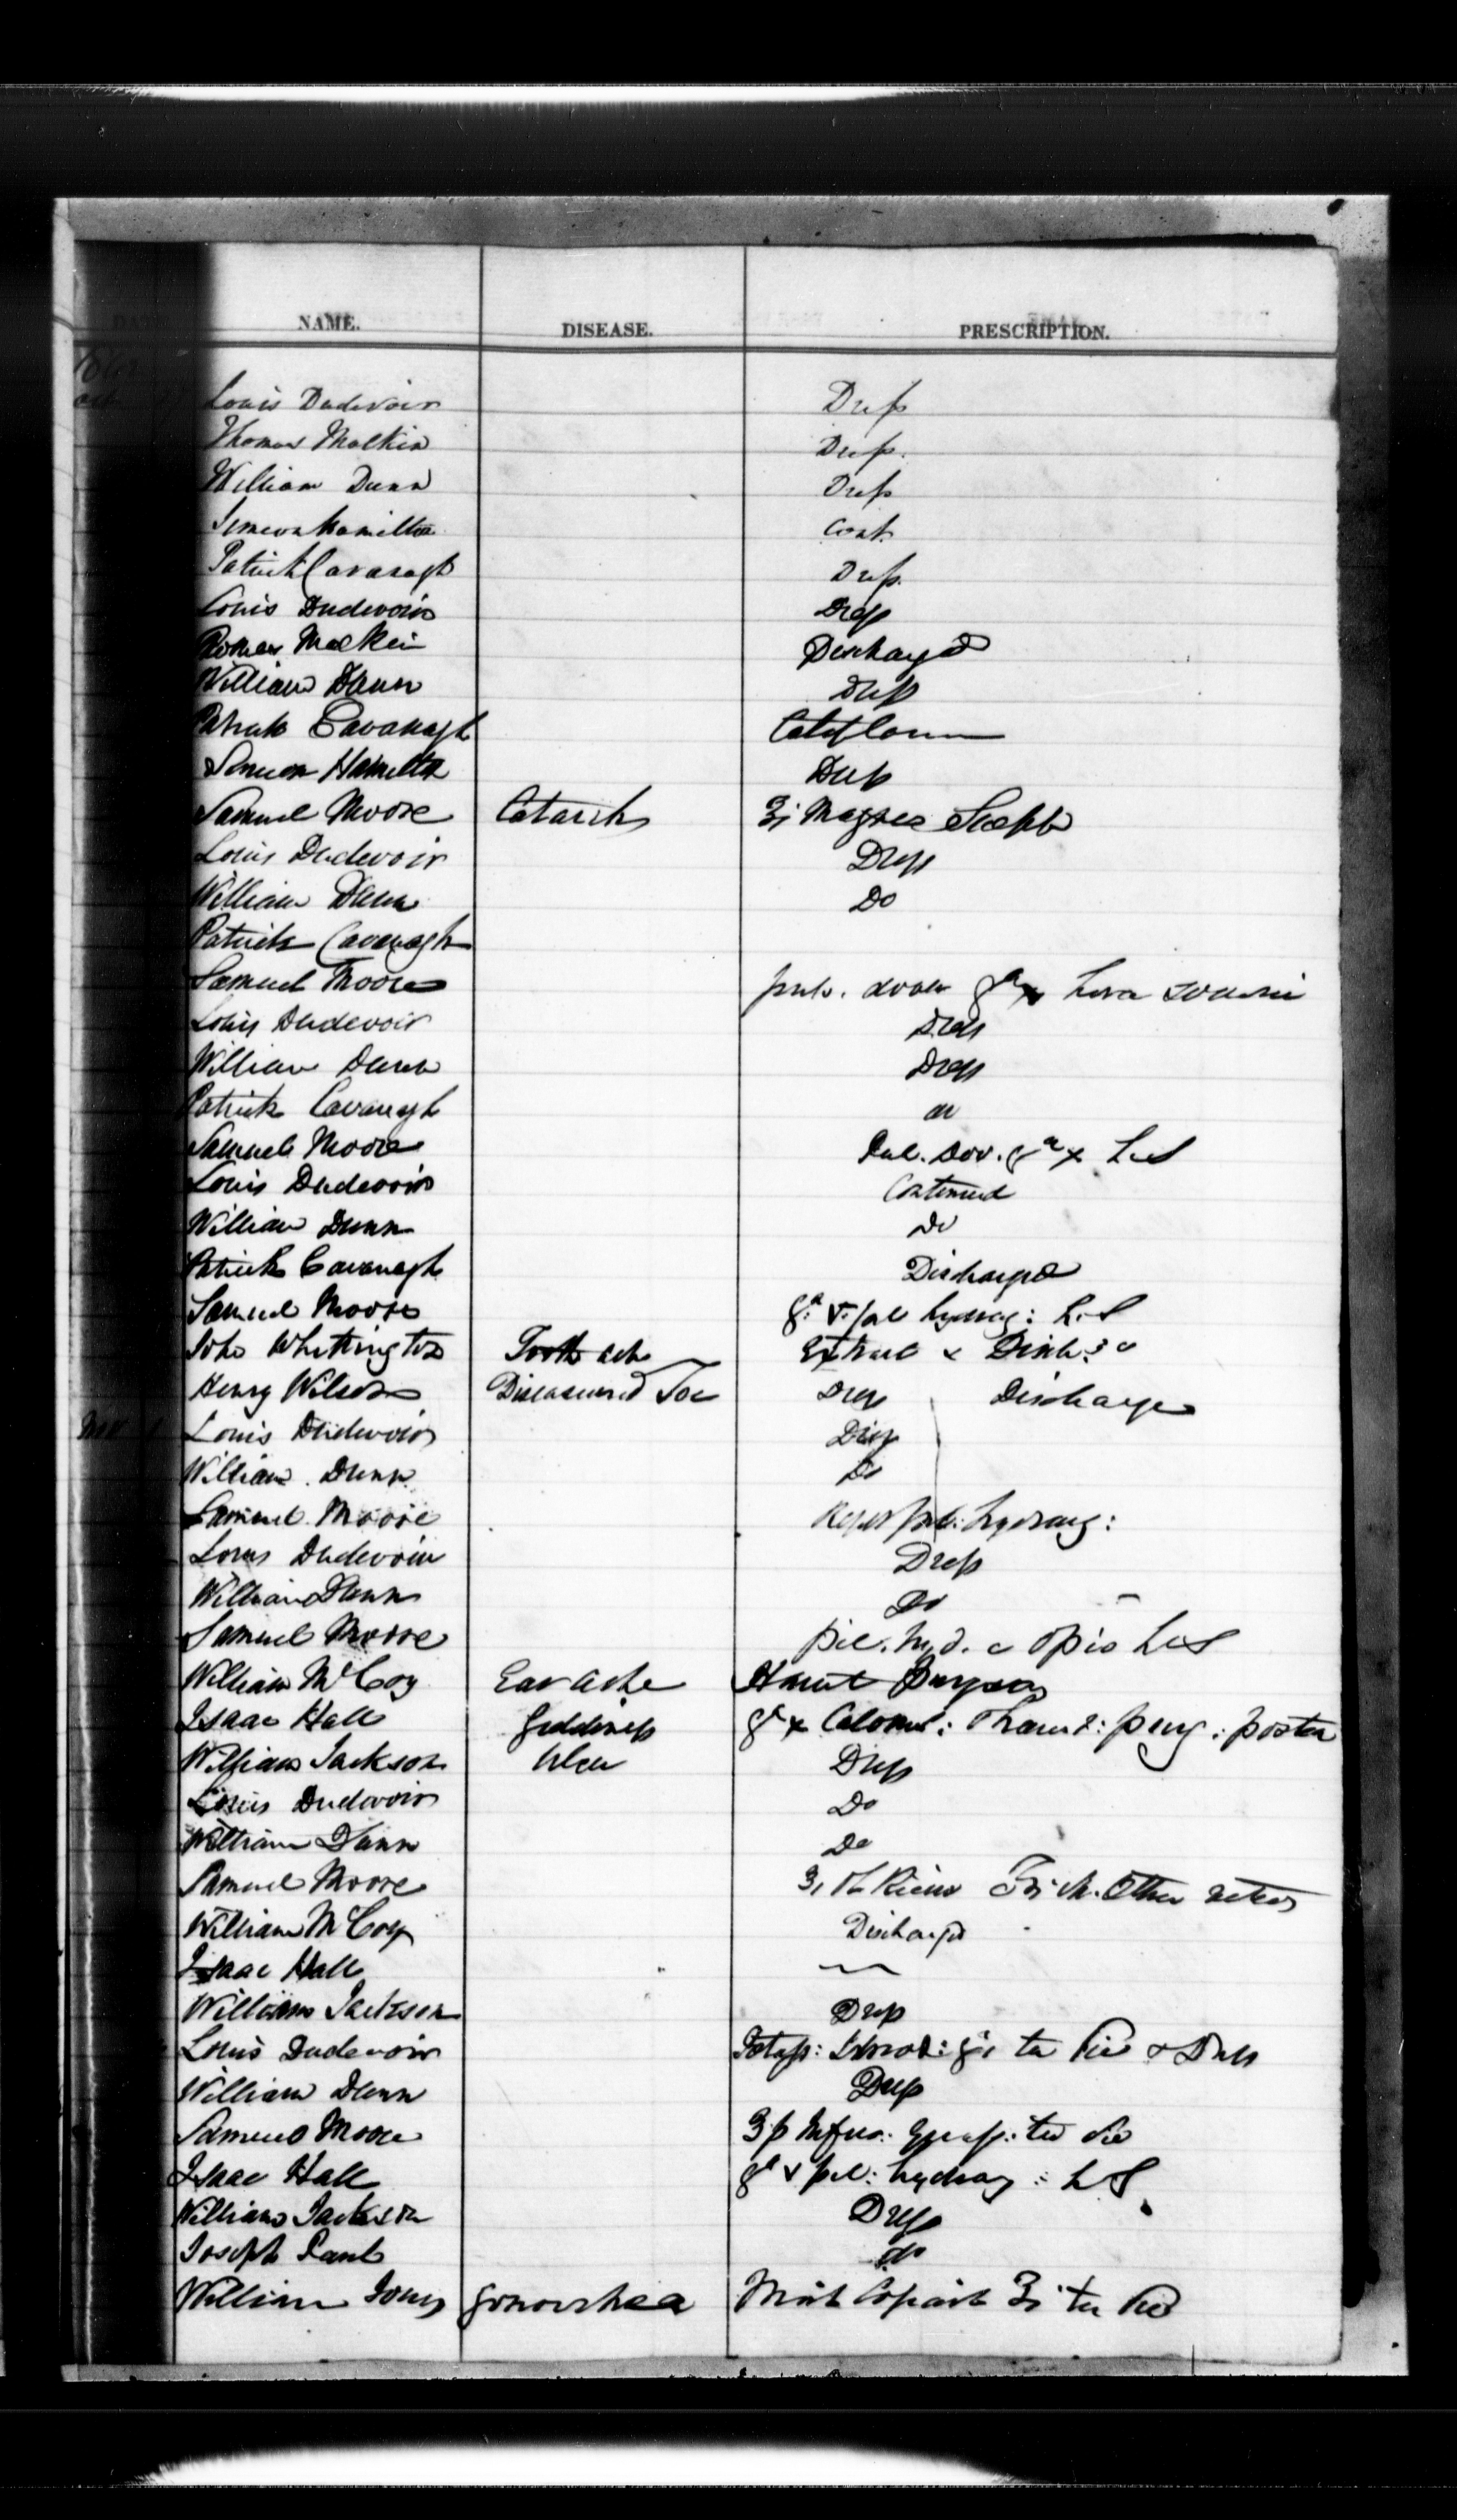 DATE NAME. DISEASE. PRESCRIPTION.
1862
Oct Louis Dudevoir Dress
Thomas Malkin Dress.
William Dunn Dress
Simeon Hamilton Cont.
Patrick Cavanagh Dress.
Louis Dudevoir Dress
Thomas Malkin Discharged
William Dunn Dress
Patrick Cavanagh Cataplasm
Simeon Hamilton Dress
Samuel Moore Catarrh ℥i Magnes Sulph
Louis Dudevoir Dress
William Dunn Do
Patrick Cavanagh
Samuel Moore pulv. dover grs x hora somni
Louis Dudevoir Dress
William Dunn Dress
Patrick Cavanagh do
Samuel Moore Pul. Dov. gr x h.s
Louis Dudevoir Continued
William Dunn Do
Patrick Cavanagh Discharged
Samuel Moore gr. v. pil hydrarg: h.s
John Whittington Tooth ache Extract & Disch:
Henry Wilson Diseased Toe Dress Discharge
Nov 1 Louis Dudevoir Dress
William Dunn Do
Samuel Moore Repet pil: hydrarg:
Louis Dudevoir Dress
William Dunn Do
Samuel Moore pil. hyd. c opio h.s
William McCoy Ear ache
Isaac Hall Giddiness gr x Calomel: purg: postea
William Jackson Ulcer Dress
Louis Dudevoir Do
William Dunn Do
Samuel Moore ℥i Ol Ricini
William McCoy Discharged
Isaac Hall
William Jackson Dress
Louis Dudevoir Potass: Iod: ter die & Dress
William Dunn Dress
Samuel Moore Infus: ter die
Isaac Hall gr v pil: hydrarg: h S
William Jackson Dress
Joseph Paul do
William Jones Gonorrhea Mist Copaib ℥i ter die